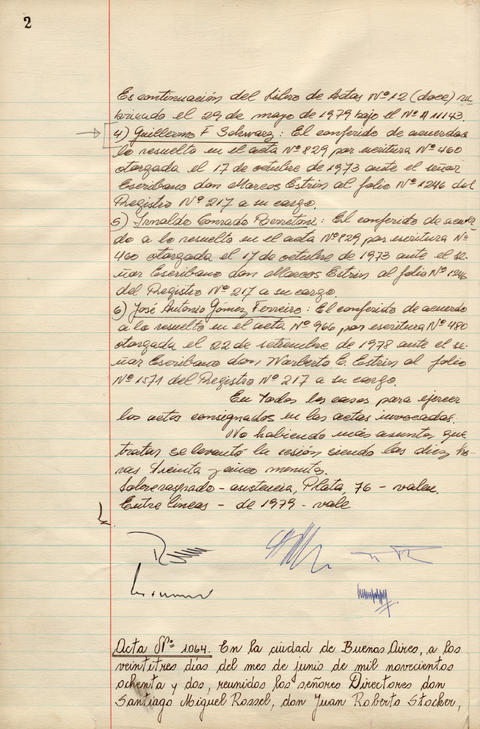 2
Es continuación del Libro de Actas Nº 12 (doce) ru
bricado el 29 de mayo de 1979 bajo el Nº A 11143.
4) Guillermo F. Schwarz: El conferido de acuerdo a
lo resuelto en el acta Nº 829 por escritura Nº 460
otorgada el 17 de octubre de 1973 ante el señor
Escribano don Marcos Estrin al folio Nº 1246 del
Registro Nº 217 a su cargo.
5) Arnaldo Conrado Benetson: El conferido de acuer
do a lo resuelto en el acta Nº 829 por escritura Nº
460 otorgada el 17 de octubre de 1973 ante el se
ñor Escribano don Marcos Estrin al folio Nº 1246
del Registro Nº 217 a su cargo
6) José Antonio Gómez Ferreiro: El conferido de acuerdo
a lo resuelto en el acta Nº 966 por escritura Nº 480
otorgada el 22 de setiembre de 1978 ante el se
ñor Escribano don Norberto E. Estrin al folio
Nº 1571 del Registro Nº 217 a su cargo.
En todos los casos para ejercer
los actos consignados en las actas invocadas.
No habiendo más asuntos que
tratar se levantó la sesión siendo las diez ho
ras treinta y cinco minutos.
Sobrerraspado - asistencia, Plata, 76 - valen.
Entre líneas - de 1979 - vale
Acta Nº 1064. En la ciudad de Buenos Aires, a los
veintitres días del mes de junio de mil novecientos
ochenta y dos, reunidos los señores Directores don
Santiago Miguel Rossel, don Juan Roberto Stocker,